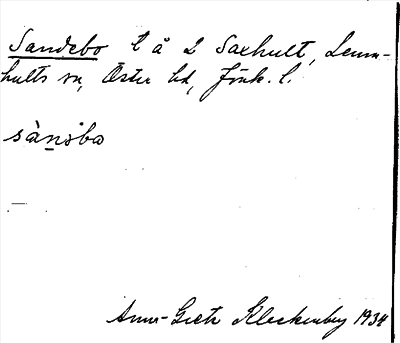 Sandebo t å L Saxhult, Lemn-
hults sn, Öster hd, Jönk. l.
sànəba
Anna-Greta Kleckenberg 1934